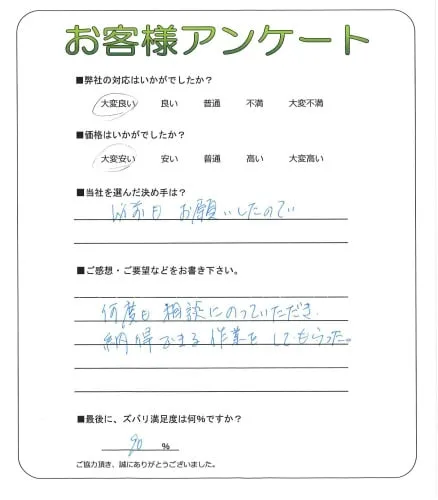 お客様アンケート
■弊社の対応はいかがでしたか？
大変良い 良い 普通 不満 大変不満
■価格はいかがでしたか？
大変安い 安い 普通 高い 大変高い
■当社を選んだ決め手は？
以前も お願いしたので
■ご感想・ご要望などをお書き下さい。
何度も相談にのっていただき、
納得できる作業をしてもらった。
■最後に、ズバリ満足度は何%ですか？
90 %
ご協力頂き、誠にありがとうございました。